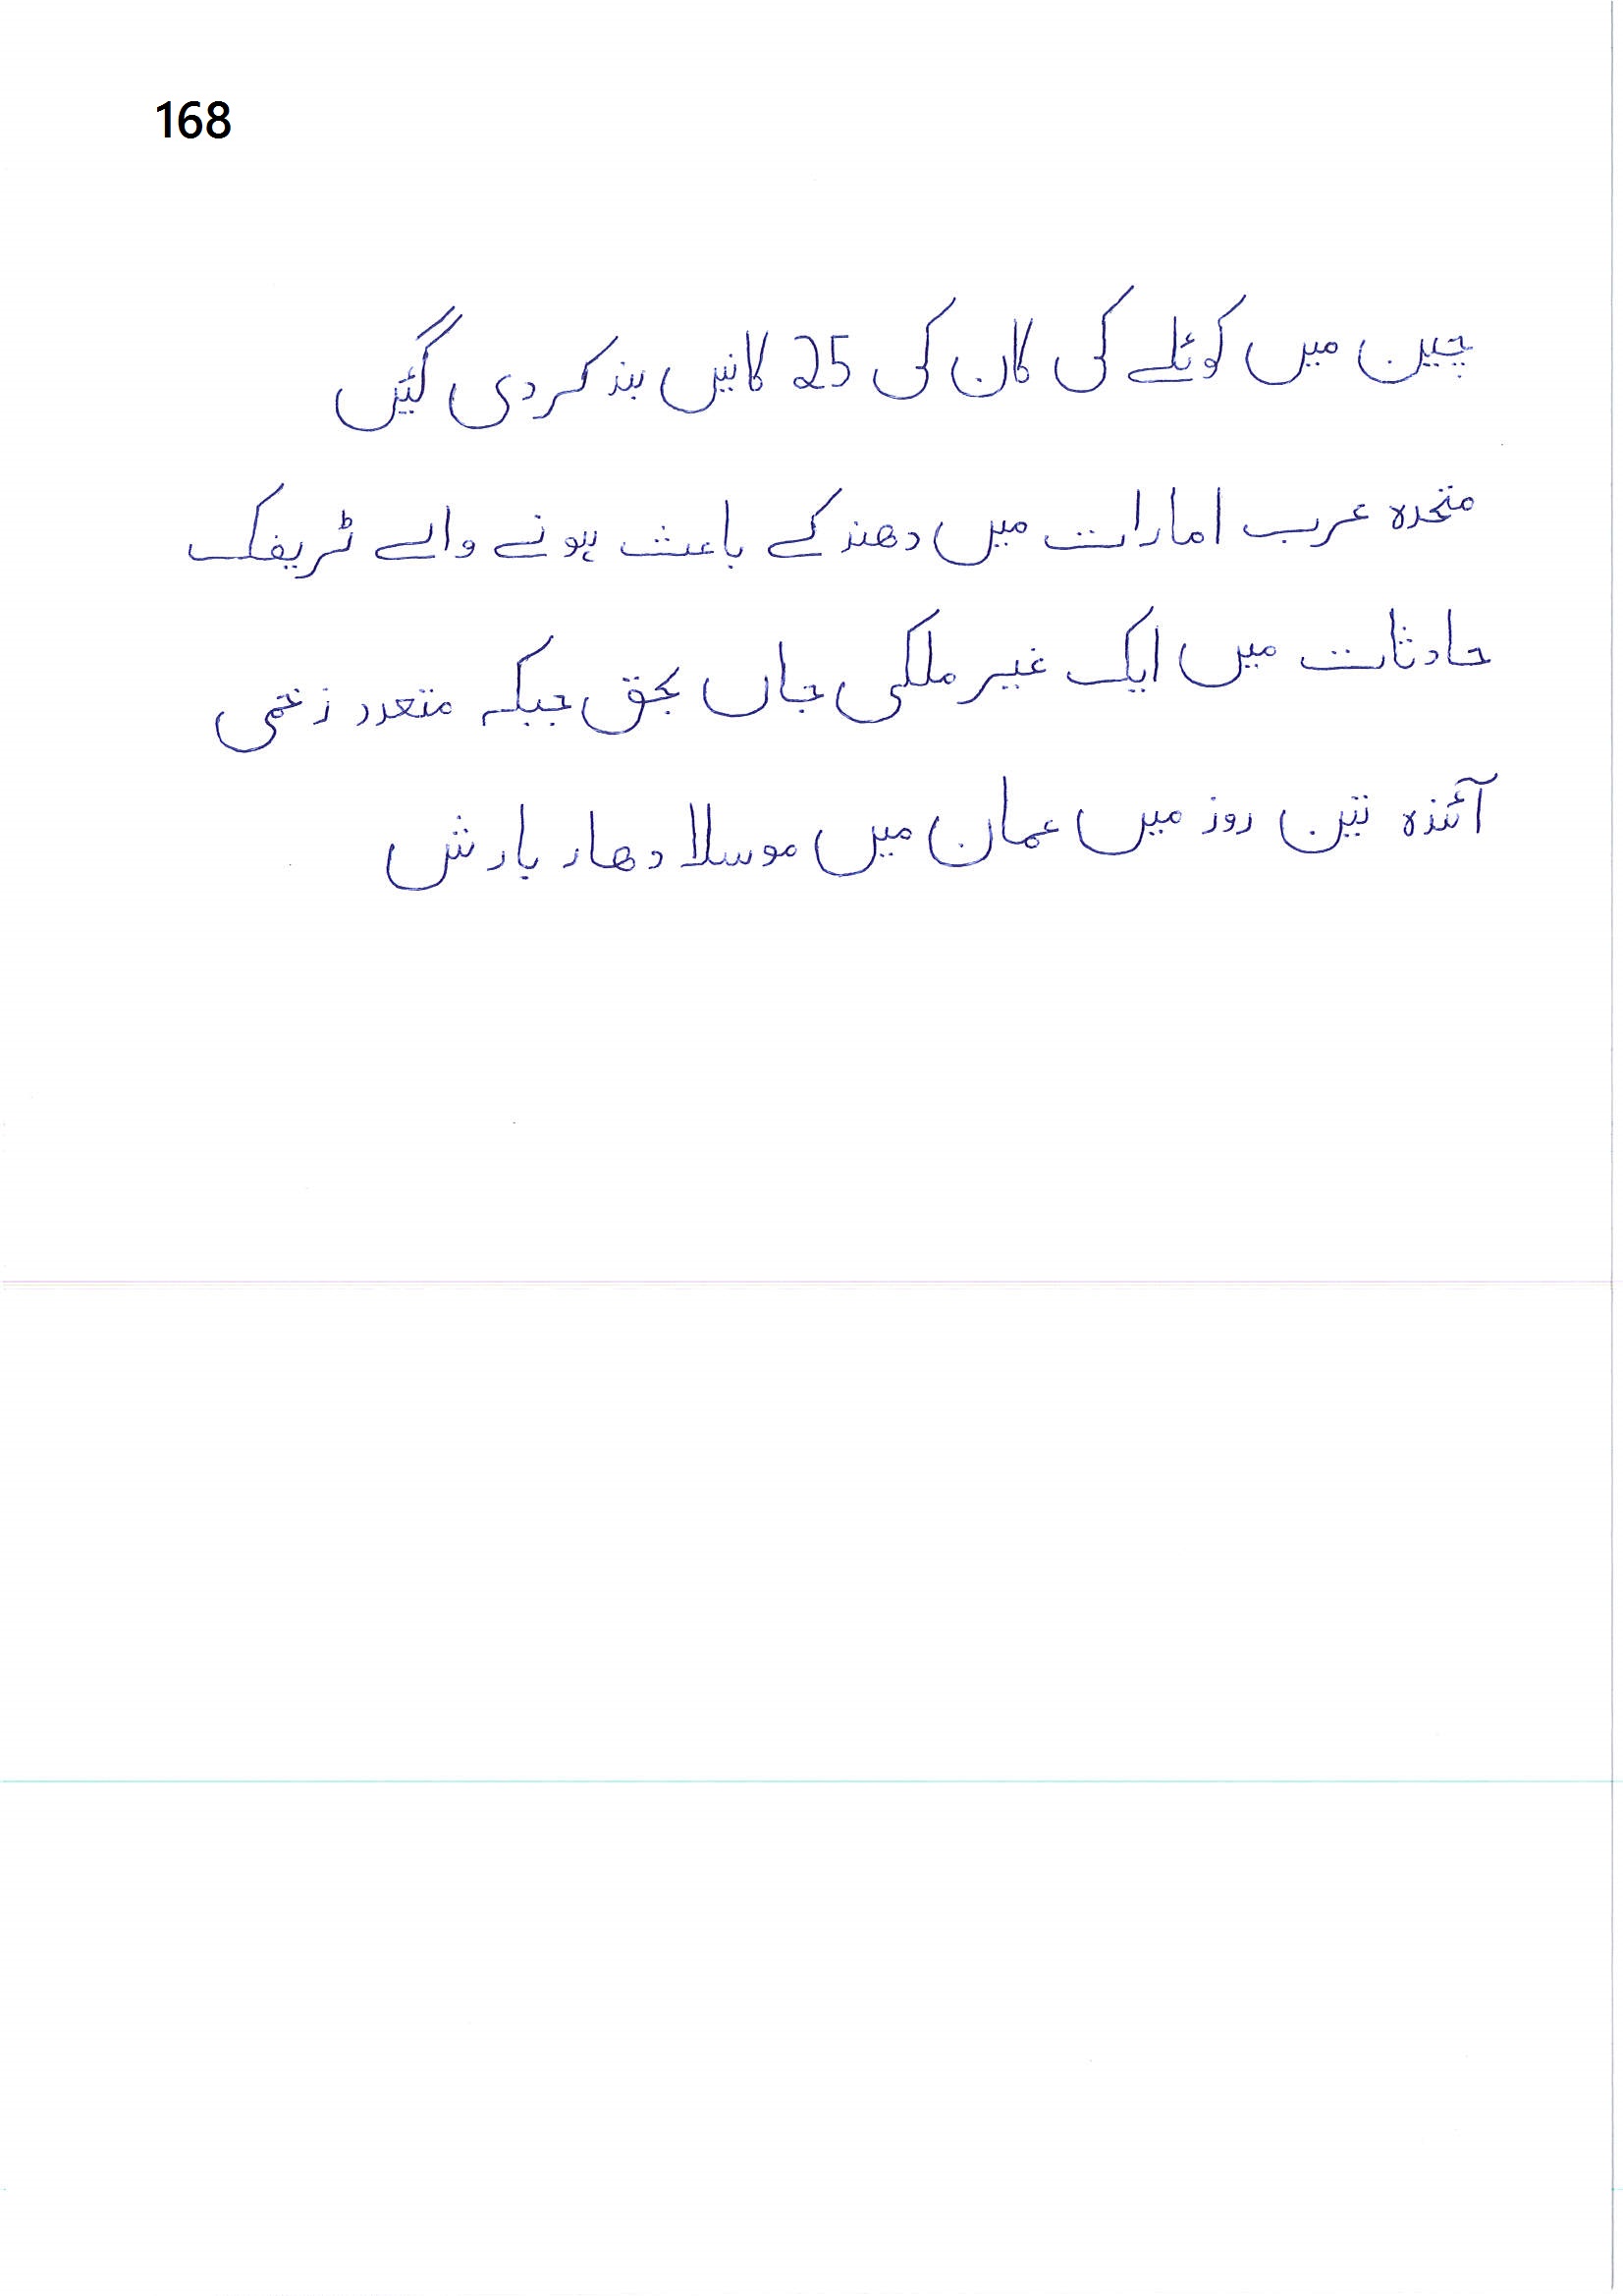 168
چین میں کوئلے کی کان کی 25 کانیں بند کر دی گئیں
متحدہ عرب امارات میں دھند کے باعث ہونے والے ٹریفک
حادثات میں ایک غیر ملکی جاں بحق جبکہ متعدد زخمی
آئندہ تین روز میں عمان میں موسلا دھار بارش